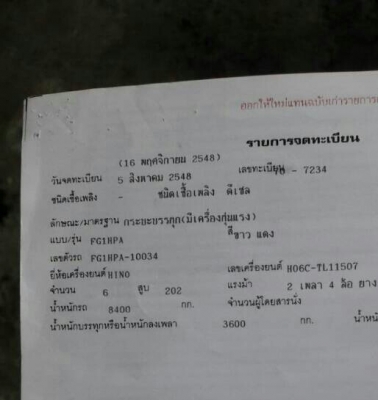 ออกให้ใหม่แทนฉบับเก่ารายการ
รายการจดทะเบียน
(16 พฤศจิกายน 2548)
วันจดทะเบียน 5 สิงหาคม 2548 เลขทะเบียน - 7234
ชนิดเชื้อเพลิง - ชนิดเชื้อเพลิง ดีเซล
ลักษณะ/มาตรฐาน กระบะบรรทุก(มีเครื่องทุ่นแรง)
แบบ/รุ่น FG1HPA สี ขาว แดง
เลขตัวรถ FG1HPA-10034
ยี่ห้อเครื่องยนต์ HINO เลขเครื่องยนต์ H06C-TL11507
จำนวน 6 สูบ 202 แรงม้า 2 เพลา 4 ล้อ ยาง
น้ำหนักรถ 8400 กก. จำนวนผู้โดยสารนั่ง
น้ำหนักบรรทุกหรือน้ำหนักลงเพลา 3600 กก. น้ำหนั